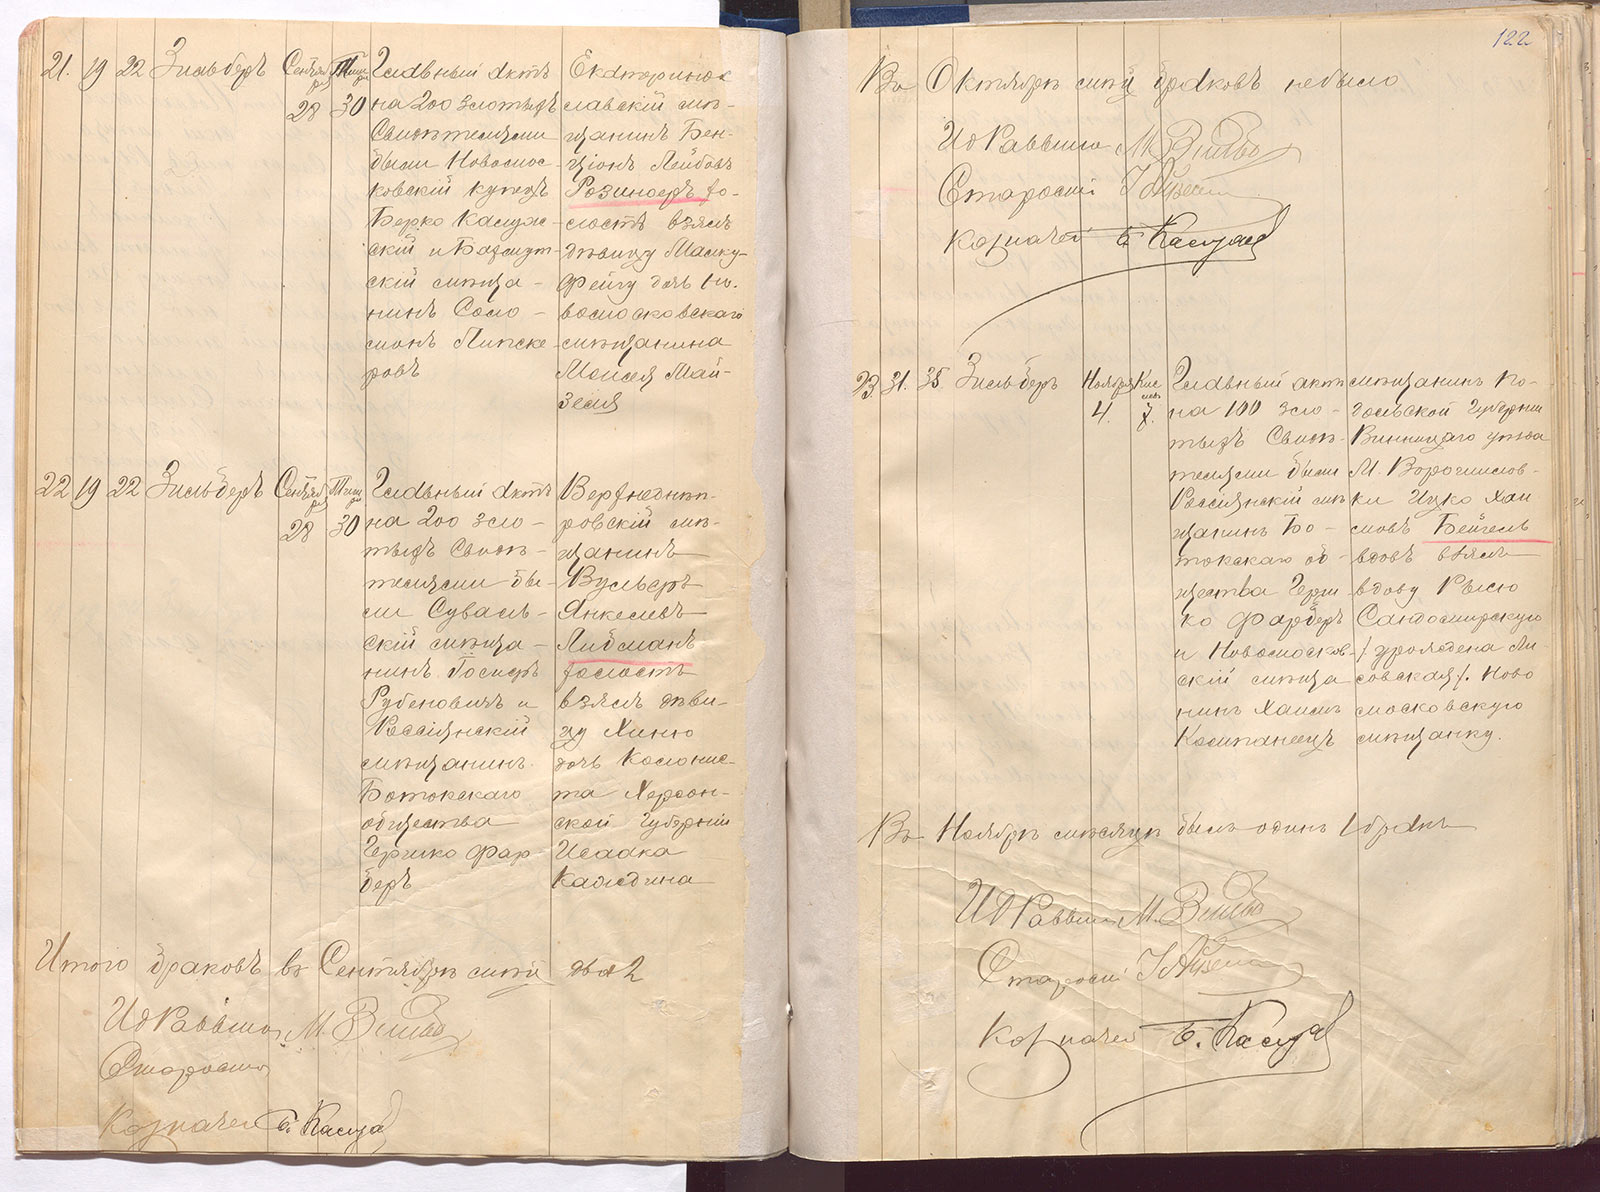 21. 19 22 Зильберъ Сентяб 28 Тишри 30
Главный актъ
на 200 злотыхъ
Свидѣтелями
были Новомос-
ковскій купецъ
Берко Калуж-
скій и
скій мѣща-
нинъ Соло-
монъ Липске-
ровъ
Екатерино-
славскій мѣ-
щанинъ Бен-
ціонъ Лейбовъ
Розиноеръ хо-
лостъ взялъ
дѣвицу Малку-
Фейгу дочь Но-
вомосковскаго
мѣщанина
Моисея Май-
зеля
22 19 22 Зильберъ Сентяб 28 Тишри 30
Главный актъ
на 200 зло-
тыхъ Свидѣ-
телями бы-
ли Суваль-
скій мѣща-
нинъ Іосифъ
Рубеновичъ и
Россіянскій
мѣщанинъ
Ботокскаго
общества
Гершко Фар-
беръ
Верхнеднѣп-
ровскій мѣ-
щанинъ
Вульфъ
Янкелевъ
Лидманъ
холостъ
взялъ дѣви-
цу Хиню
дочь колонис-
та Херсон-
ской Губерніи
Исаака
Каждана
Итого браковъ въ Сентябрѣ м-цѣ два 2
И д Раввина М.
Староста
Казначей Б. Калуж
122
Въ Октябрѣ м-цѣ браковъ небыло
И д Раввина М.
Староста
Казначей Б. Калуж
23. 31. 35. Зильберъ Ноября 4. Кис лев 7.
Главный актъ
на 100 зло-
тыхъ Свидѣ-
телями были
Россіянскій мѣ-
щанинъ Бо-
токскаго об-
щества Герш
ко Фарберъ
и Новомосков-
скій мѣща
нинъ Хаимъ
Компанеецъ
мѣщанинъ По-
дольской Губерніи
Винницкаго уѣзда
М. Ворошилов-
ки Ицко Хаи
мовъ Бейгель
вдовъ взялъ
вдову Рысю
Сандомирскую
/урождена Ли-
совская/. Ново
московскую
мѣщанку.
Въ Ноябрѣ мѣсяцѣ былъ одинъ 1 бракъ
И д Раввина М.
Староста
Казначей Б. Калуж